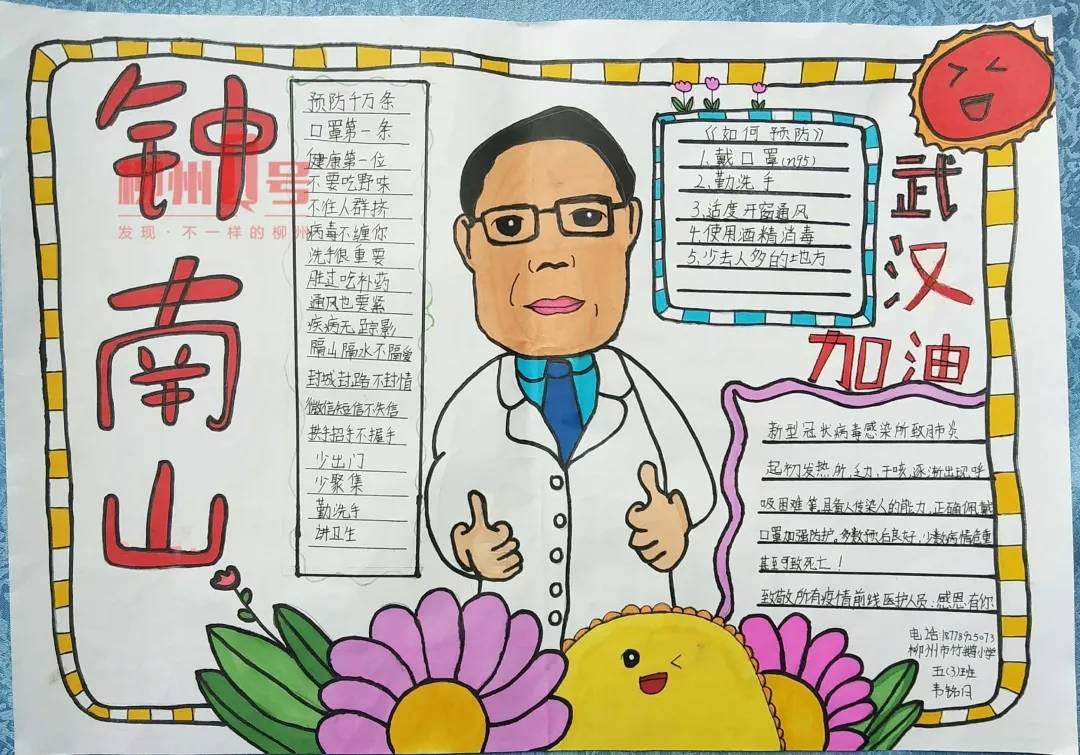 钟南山
柳州1号
发现·不一样的柳州
预防千万条
口罩第一条
健康第一位
不要吃野味
不往人群挤
病毒不缠你
洗手很重要
胜过吃补药
通风也要紧
疾病无踪影
隔山隔水不隔爱
封城封路不封情
微信短信不失信
拱手招手不握手
少出门
少聚集
勤洗手
讲卫生
《如何预防》
1、戴口罩(n95)
2、勤洗手
3、适度开窗通风
4、使用酒精消毒
5、少去人多的地方
武汉
加油
新型冠状病毒感染所致肺炎
起初发热所,乏力,干咳,逐渐出现呼
吸困难等,具备人传染人的能力,正确佩戴
口罩加强防护。多数预后良好,少数病情危重
甚至可致死亡!
致敬所有疫情前线医护人员,感恩有你
电话:18778925073
柳州市竹鹅小学
五(3)班